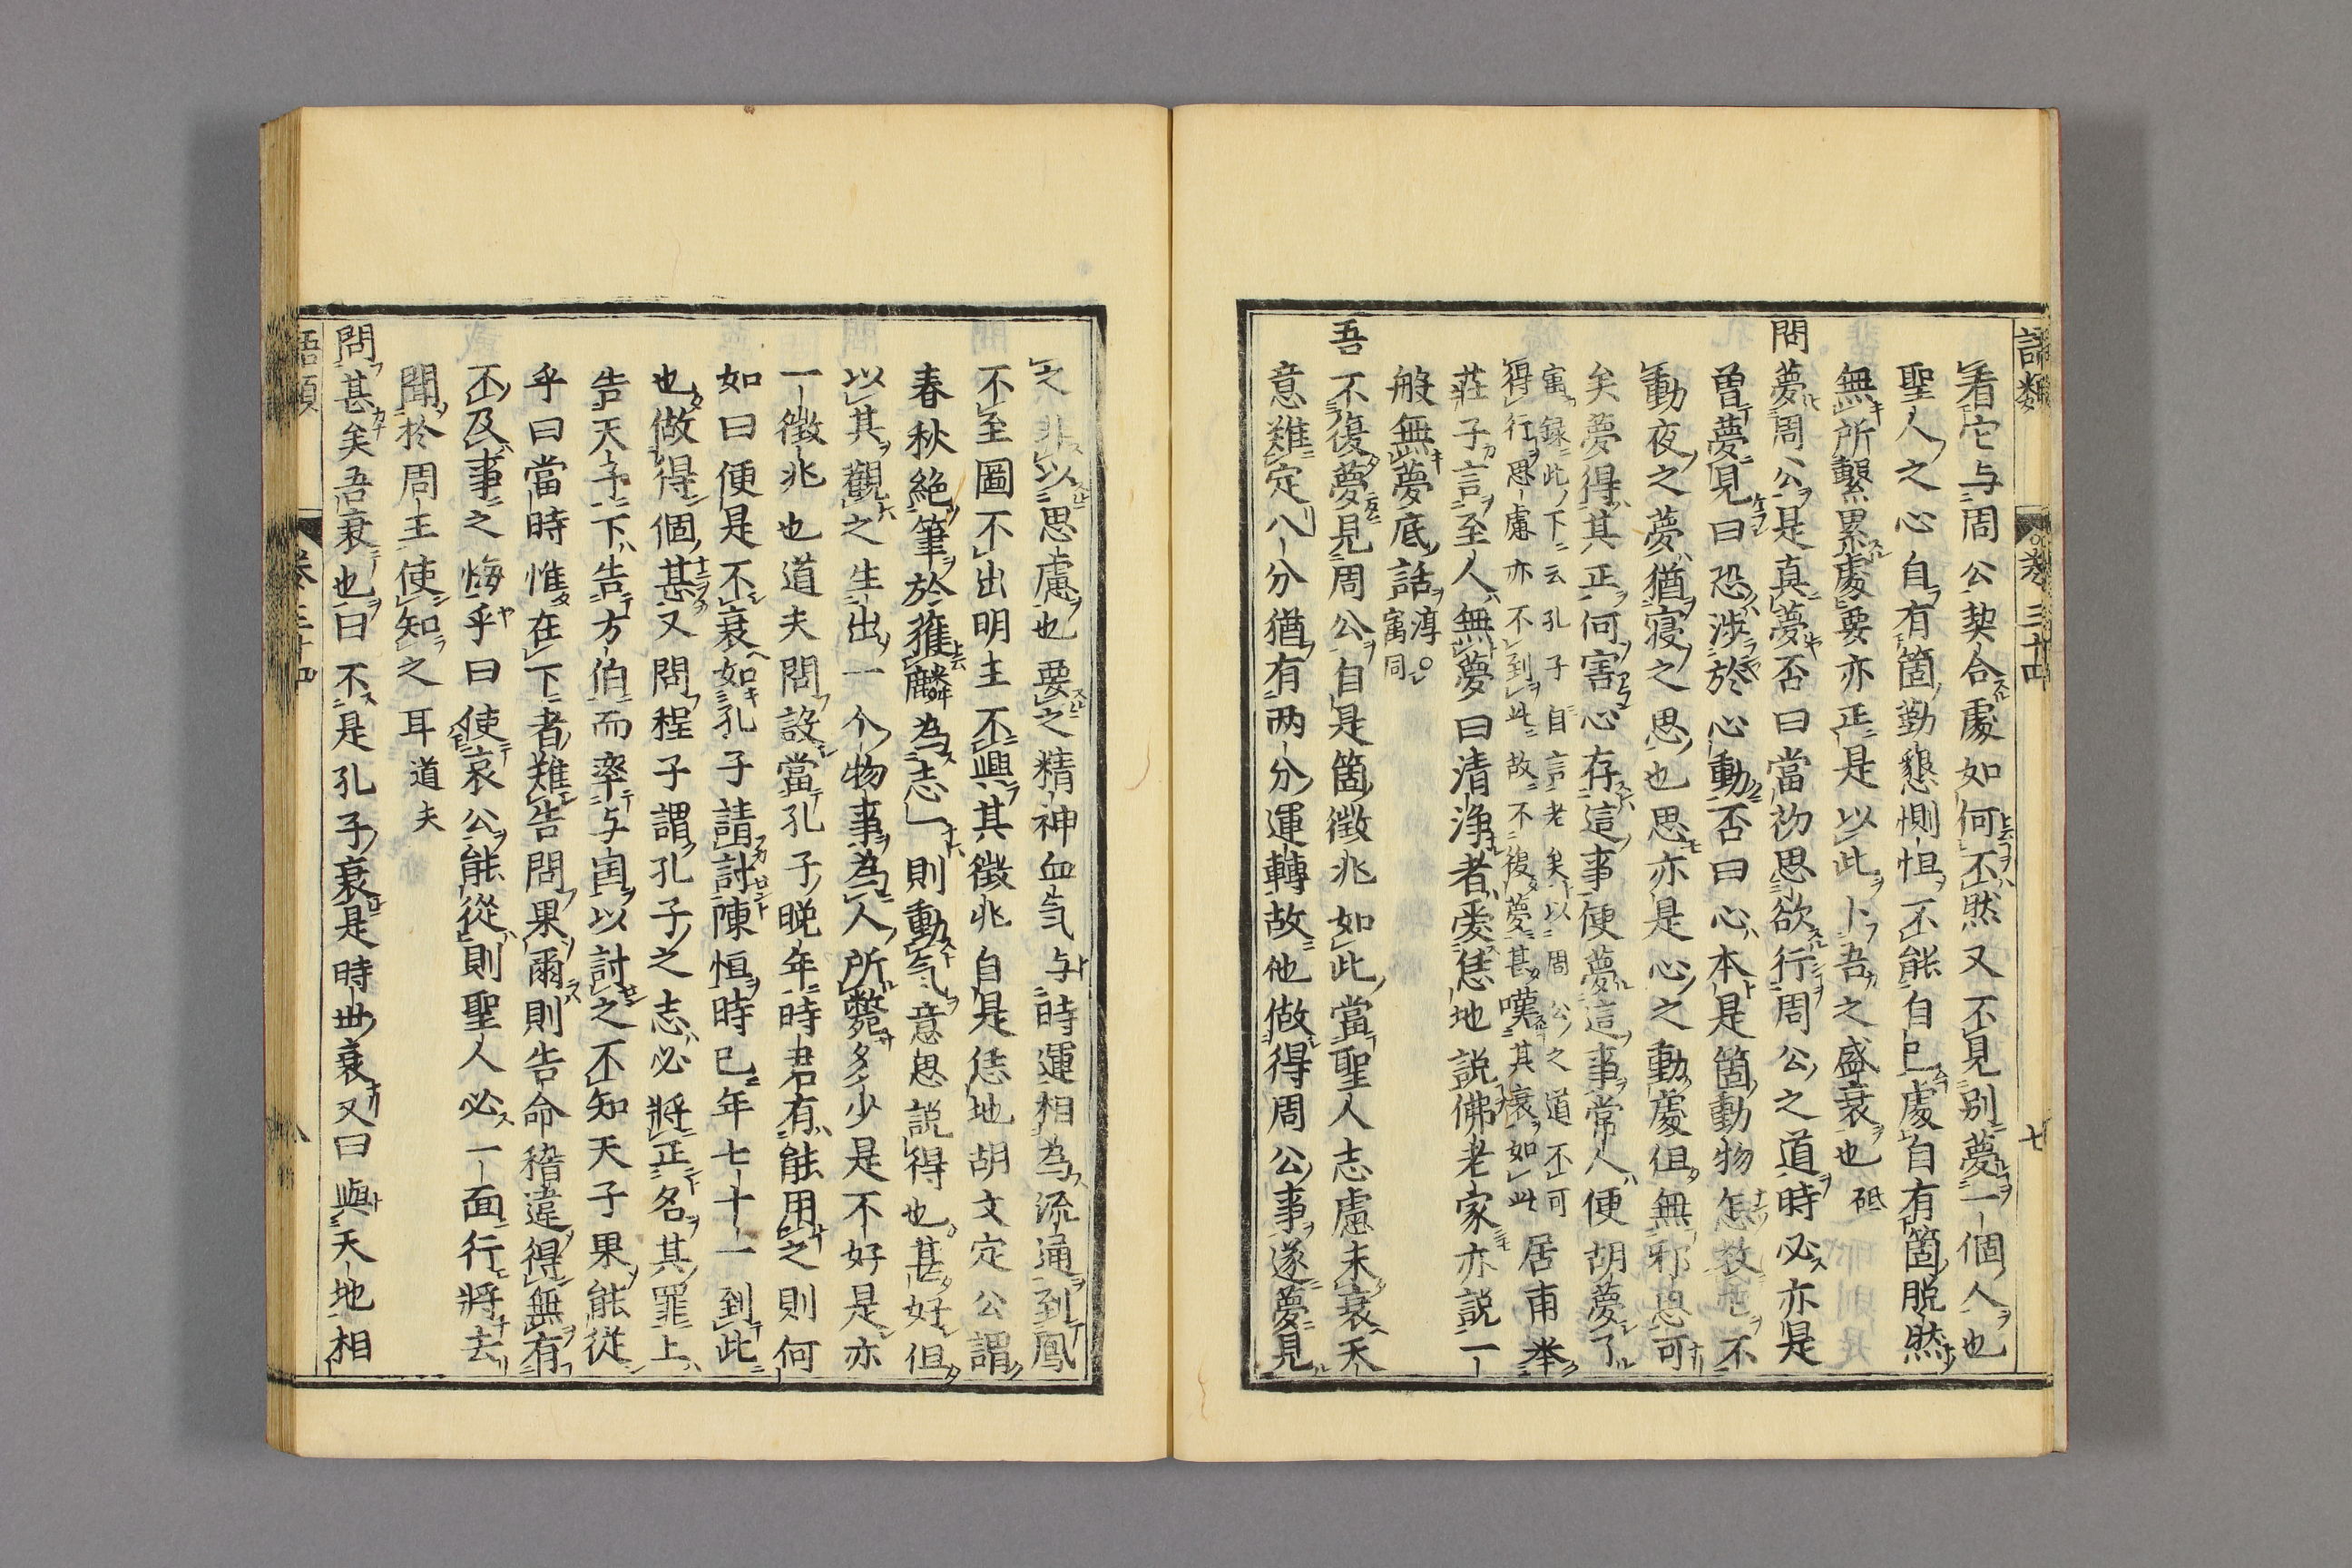 語類 卷三十四 七
看它与周公契合處如何不然又不見別夢一個人也
聖人之心自有箇勤懇惻怛不能自已處自有箇脫然
無所繫累處要亦正是以此卜吾之盛衰也砥
問夢周公是真夢否曰當初思欲行周公之道時必亦是
曽夢見曰恐涉於心動否曰心本是箇動物怎教他不
動夜之夢猶寝之思也思亦是心之動處但無邪思可
矣夢得其正何害心存這事便夢這事常人便胡夢了
寓録此下云孔子自言老矣以周公之道不可
得行思慮亦不到此故不復夢甚嘆其衰如此
居甫举
莊子言至人無夢曰清浄者爱恁地説佛老家亦説一
般無夢底話淳○
寓同
吾不復夢見周公自是箇徴兆如此當聖人志慮未衰天
意難定八分猶有两分運轉故他做得周公事遂夢見
之非以思慮也要之精神血気与時運相為流通到鳳
不至圖不出明主不興其徴兆自是恁地胡文定公謂
春秋絶筆於獲麟為志一則動気意思説得也甚好但
以其觀之生出一个物事為人所斃多少是不好是亦
一徴兆也道夫問設當孔子晩年時君有能用之則何
如曰便是不衰如孔子請討陳恒時已年七十一到此
也做得個甚又問程子謂孔子之志必將正名其罪上
告天子下告方伯而率与国以討之不知天子果能從
乎曰當時惟在下者難告問果爾則告命稽違得無有
不及事之悔乎曰使哀公能從則聖人必一面行將去
聞扵周王使知之耳道夫
問甚矣吾衰也曰不是孔子衰是時丗衰又曰與天地相
語類 卷三十四 八